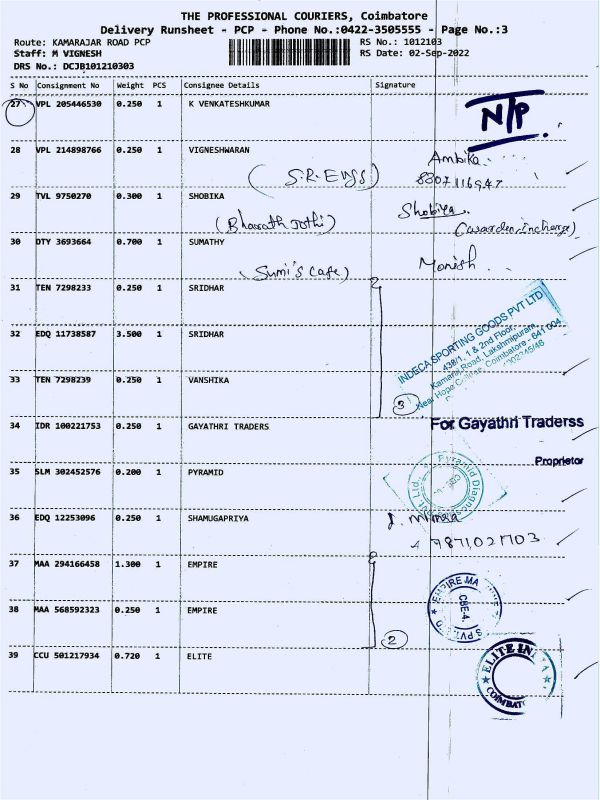 THE PROFESSIONAL COURIERS, Coimbatore
Delivery Runsheet - PCP - Phone No.:0422-3505555 - Page No.:3
Route: KAMARAJAR ROAD PCP RS No.: 1012103
Staff: M VIGNESH RS Date: 02-Sep-2022
DRS No.: DCJB101210303
S No Consignment No Weight PCS Consignee Details Signature
27 VPL 205446530 0.250 1 K VENKATESHKUMAR N/P
28 VPL 214898766 0.250 1 VIGNESHWARAN Ambika
(S.R. Eyes) 8807116947
29 TVL 9750270 0.300 1 SHOBIKA Shobiya
(Bharath Jothi) (Warden Incharge)
30 OTY 3693664 0.700 1 SUMATHY Monish
(Sumi's Cafe)
31 TEN 7298233 0.250 1 SRIDHAR
32 EDQ 11738587 3.500 1 SRIDHAR
33 TEN 7298239 0.250 1 VANSHIKA
3
INDECA SPORTING GOODS PVT LTD
438/1, 1 & 2nd Floor,
Kamaraj Road, Lakshmipuram,
Near Hope College, Coimbatore - 641 004
34 IDR 100221753 0.250 1 GAYATHRI TRADERS For Gayathri Traderss
Proprietor
35 SLM 302452576 0.200 1 PYRAMID Pyramid Diagnos Pvt. Ltd.
36 EDQ 12253096 0.250 1 SHAMUGAPRIYA
9871021703
37 MAA 294166458 1.300 1 EMPIRE
38 MAA 568592323 0.250 1 EMPIRE
2
EMPIRE MA
CBE-4.
39 CCU 501217934 0.720 1 ELITE
ELITE IN
COIMBAT